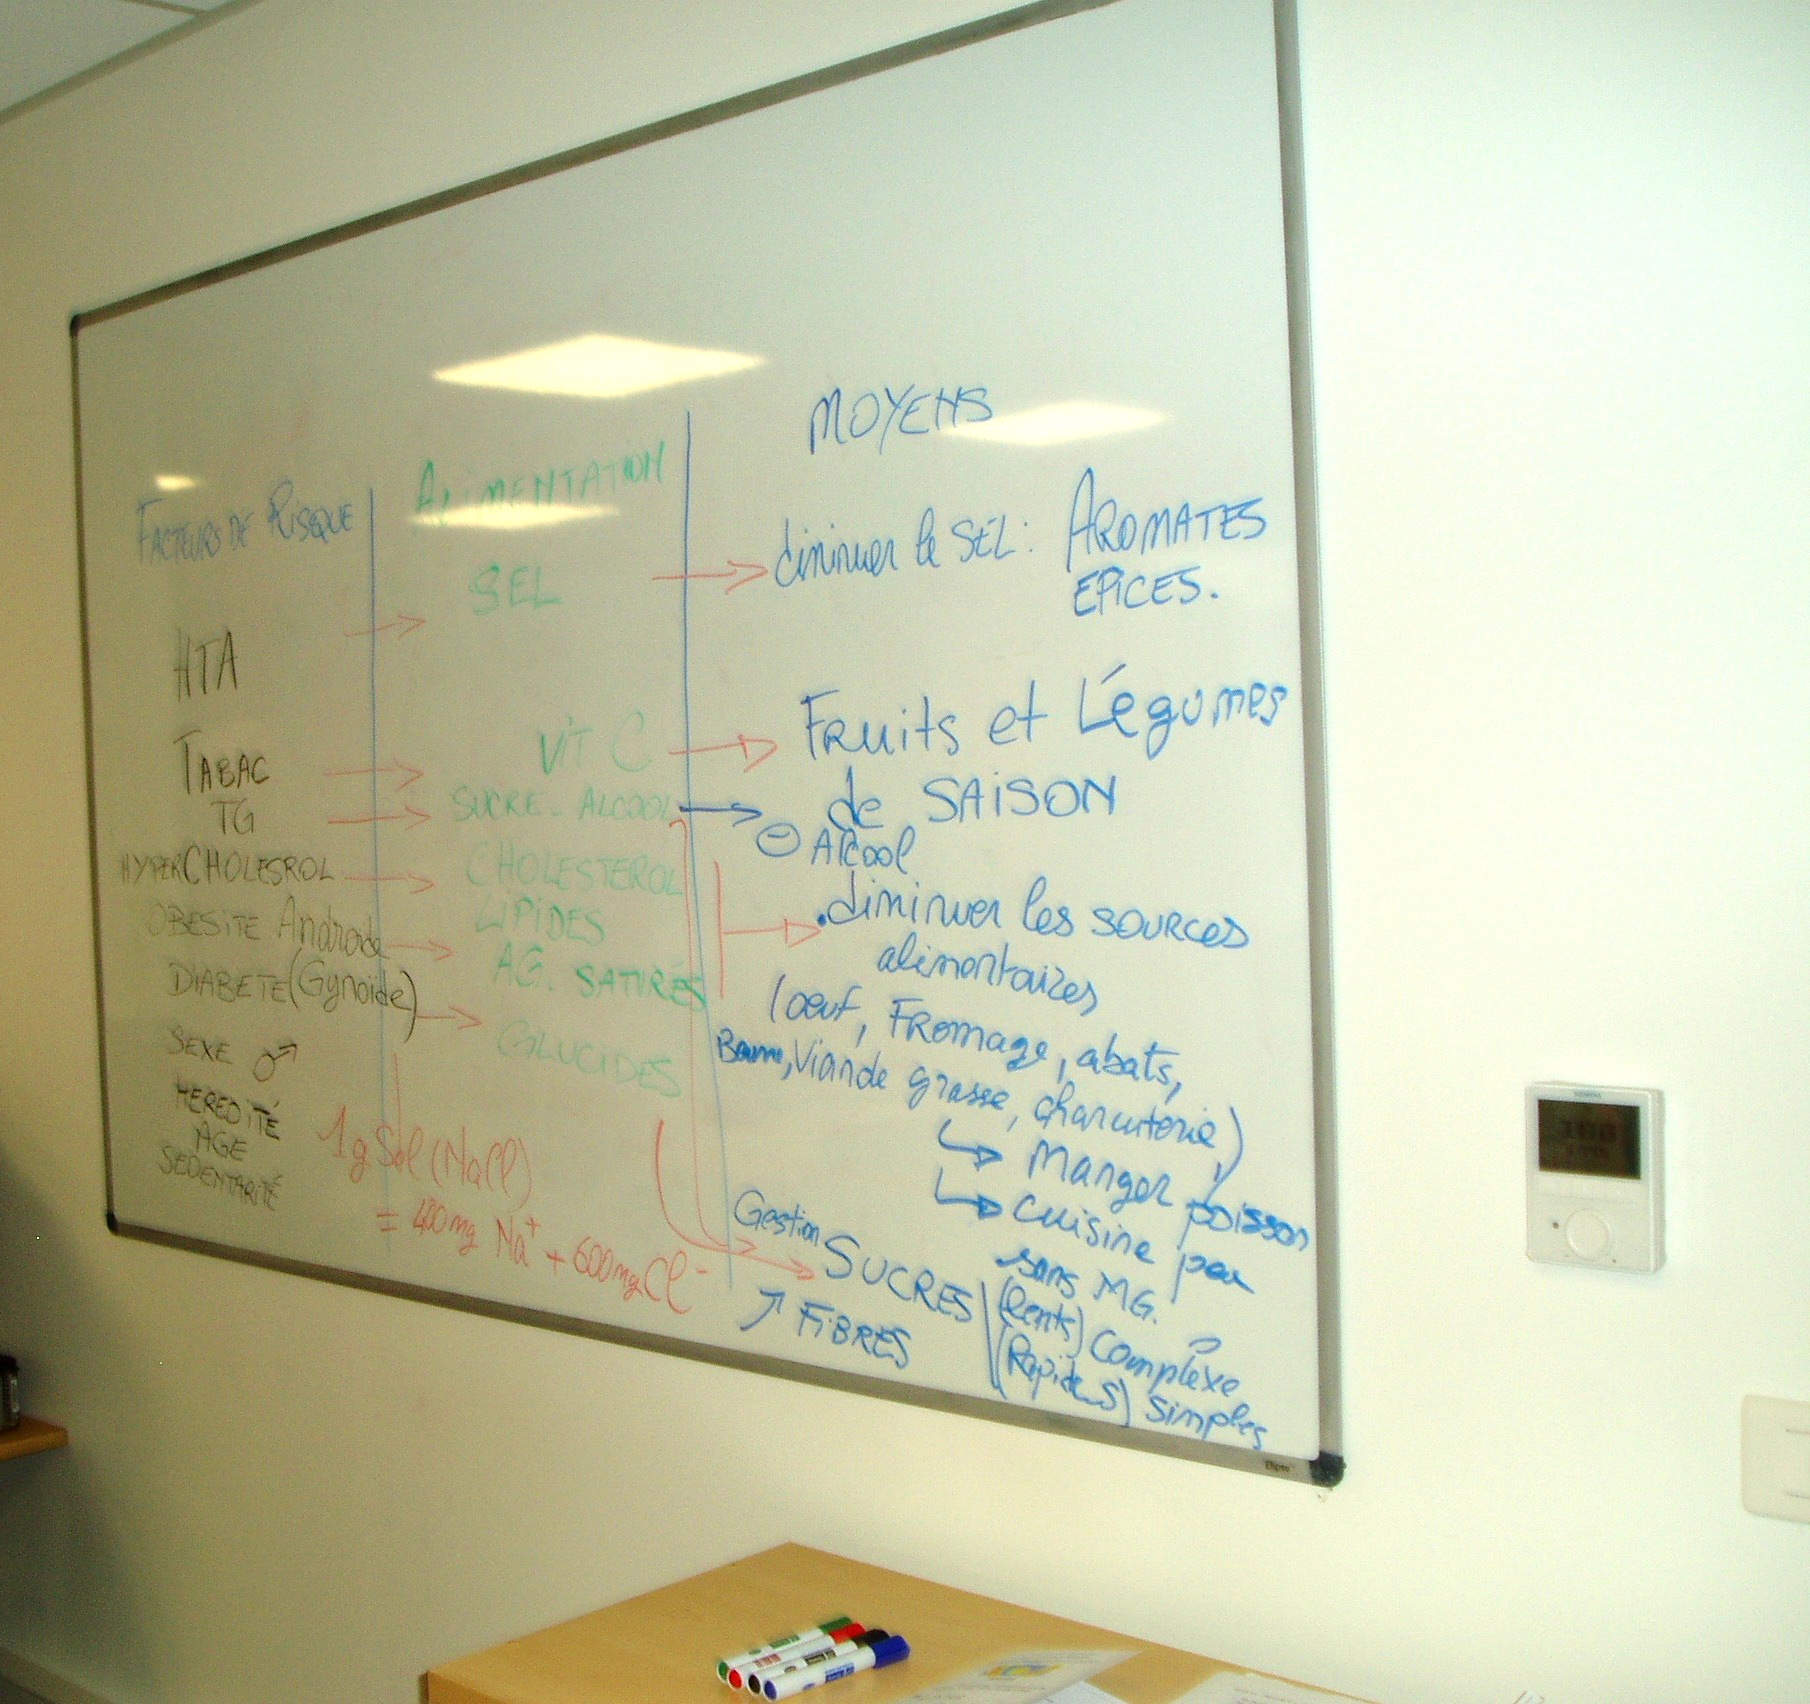 FACTEURS DE RISQUE
HTA
TABAC
TG
HYPERCHOLESROL
OBESITE Androïde
DIABETE (Gynoïde)
SEXE ♂
HEREDITÉ
AGE
SEDENTARITÉ
ALIMENTATION
SEL
VIT C
SUCRE - ALCOOL
CHOLESTEROL
LIPIDES
AG. SATURÉS
GLUCIDES
1g Sel (NaCl)
= 400mg Na+ + 600mg Cl-
MOYENS
diminuer le SEL : AROMATES
EPICES.
FRuits et Légumes
de SAISON
⊖ Alcool
• diminuer les SOURCES
alimentaires
(oeuf, FRomage, abats,
Beurre, Viande grasse, charcuterie,)
↳ Manger poisson
↳ cuisine peu
sans MG.
Gestion SUCRES (lents) complexe
(Rapides) simples
↗ FIBRES
SIEMENS